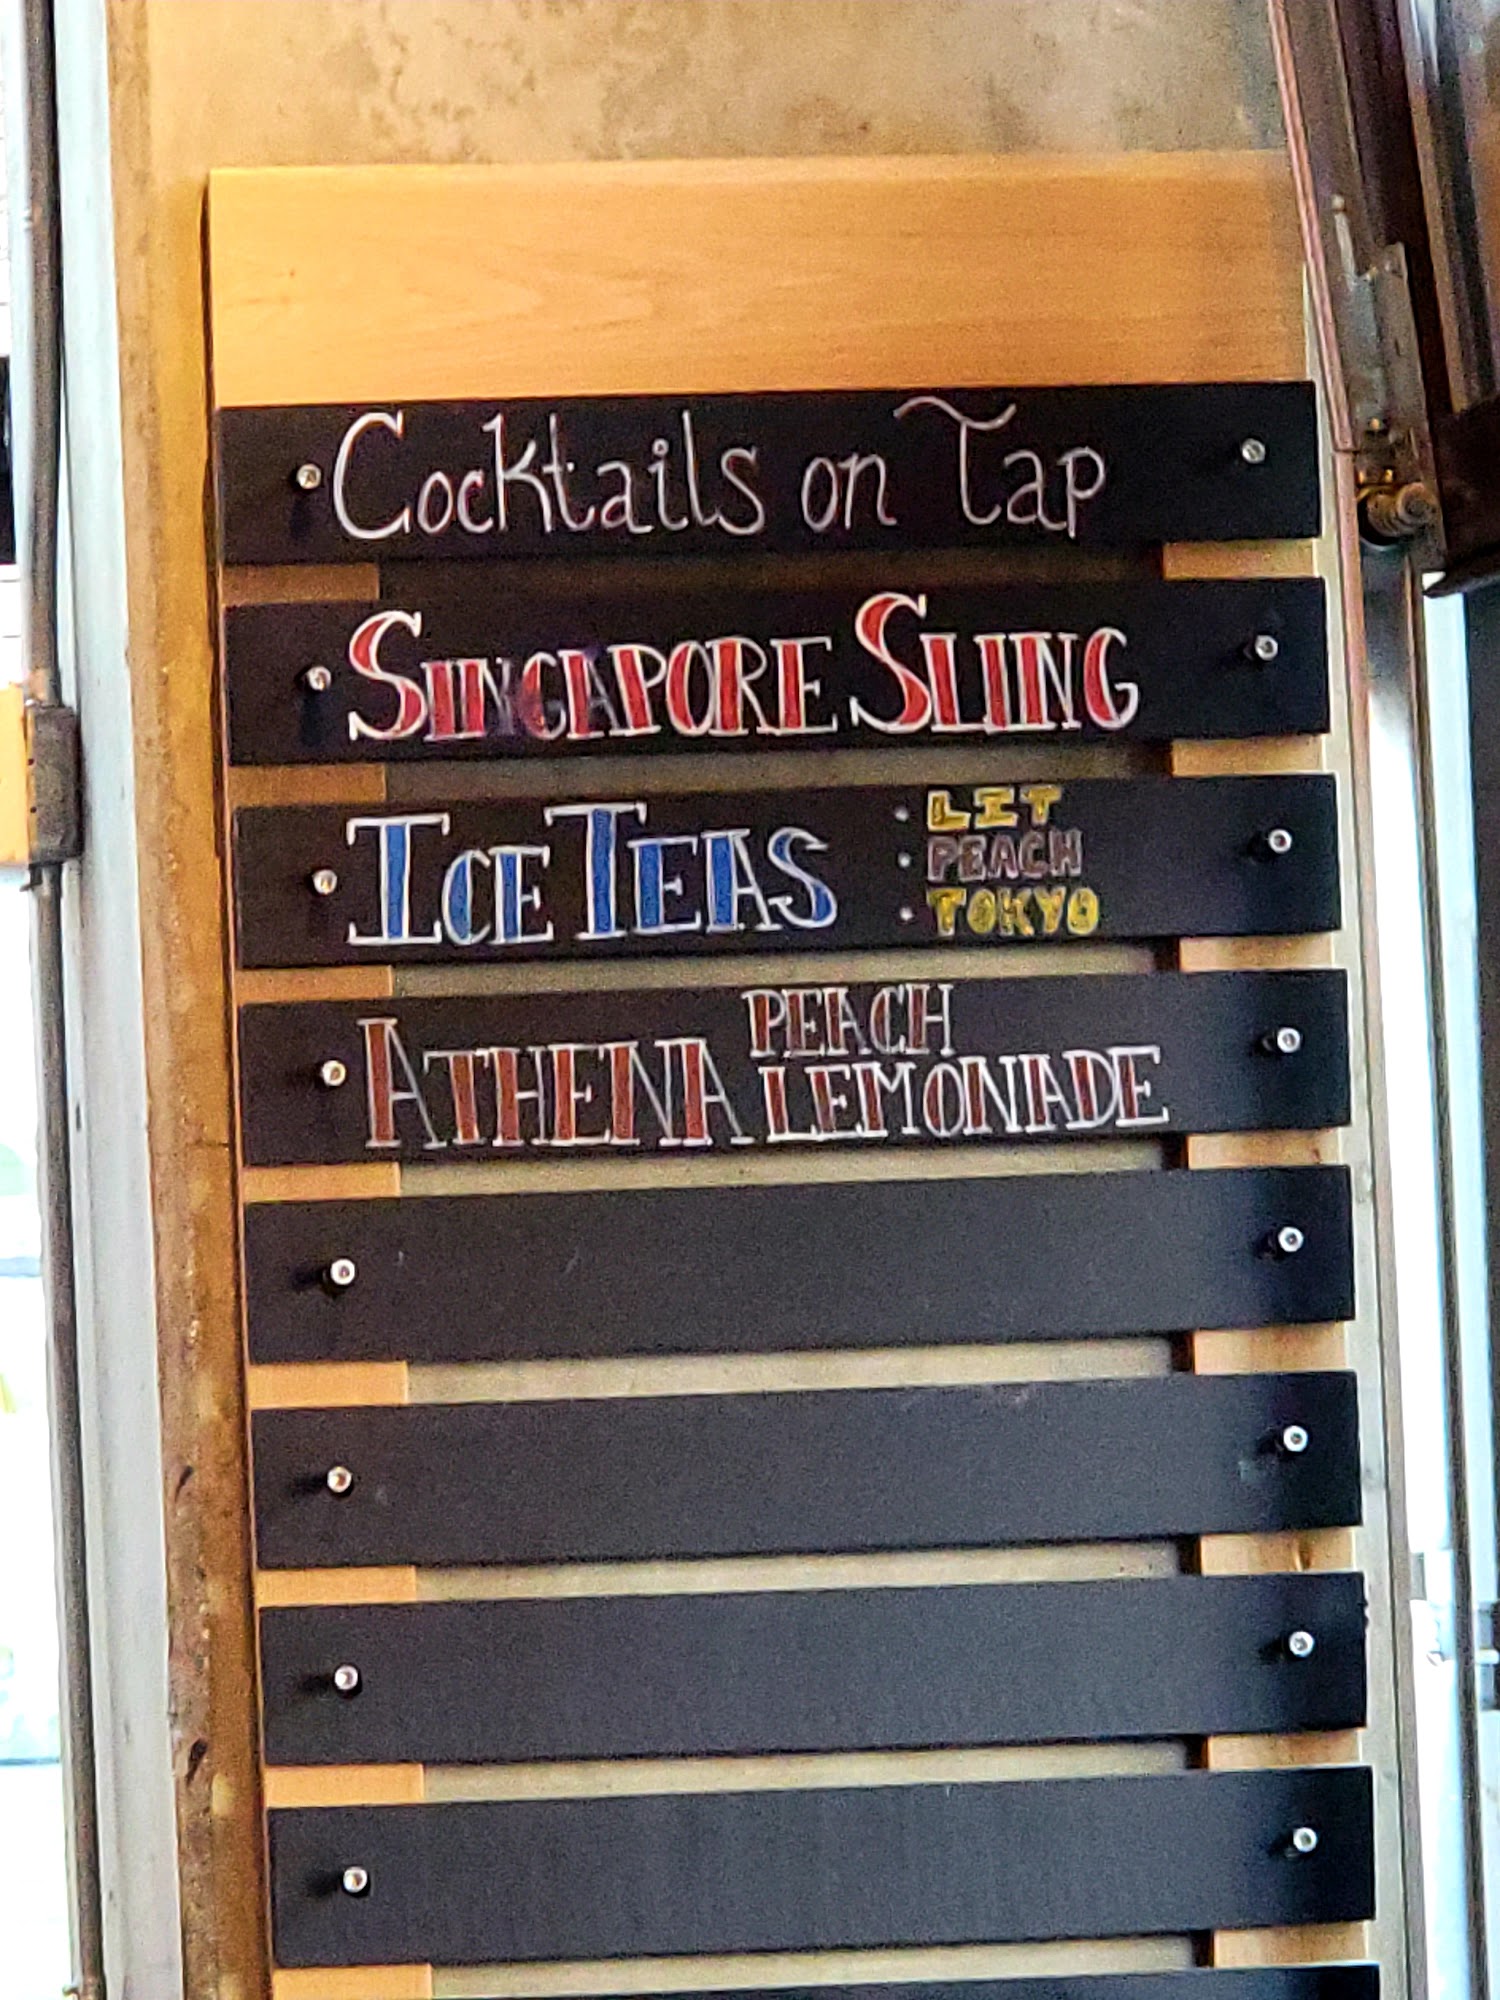 Cocktails on Tap
SINGAPORE SLING
ICE TEAS
• LIT
• PEACH
• TOKYO
ATHENA PEACH
LEMONADE